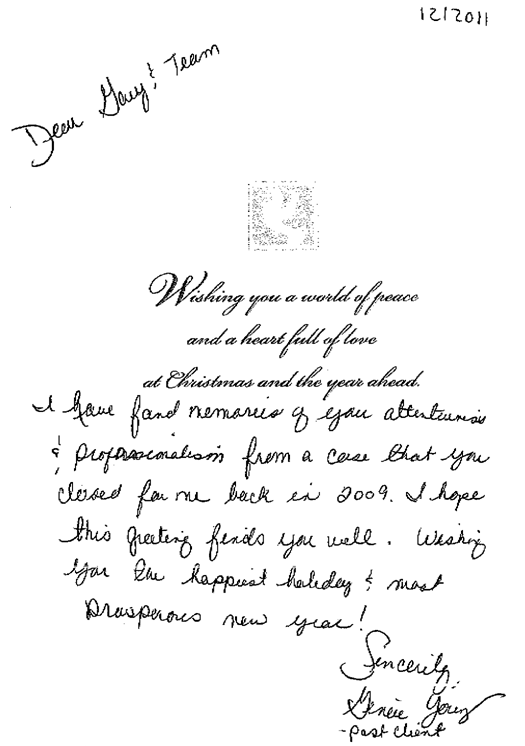 12/2011
Dear Gary & Team
Wishing you a world of peace
and a heart full of love
at Christmas and the year ahead.
I have fond memories of your attentiveness
& professionalism from a case that you
closed for me back in 2009. I hope
this greeting finds you well. Wishing
you the happiest holiday & most
prosperous new year!
Sincerely,
-past client